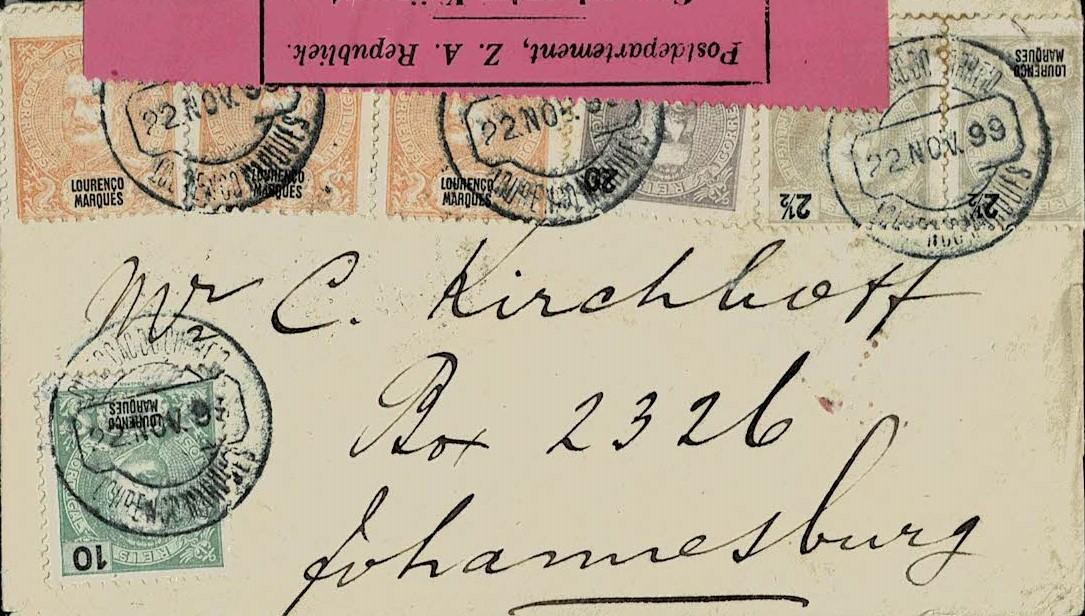 Postdepartement, Z. A. Republiek.
22 NOV. 99
LOURENÇO
MARQUES
LOURENÇO
MARQUES
22 NOV. 99
LOURENÇO
MARQUES
20
REIS
22 NOV. 99
LOURENÇO
MARQUES
2½
2½
Mr C. Kirchhoff
Box 2326
Johannesburg
22 NOV. 9
LOURENÇO
MARQUES
10
REIS